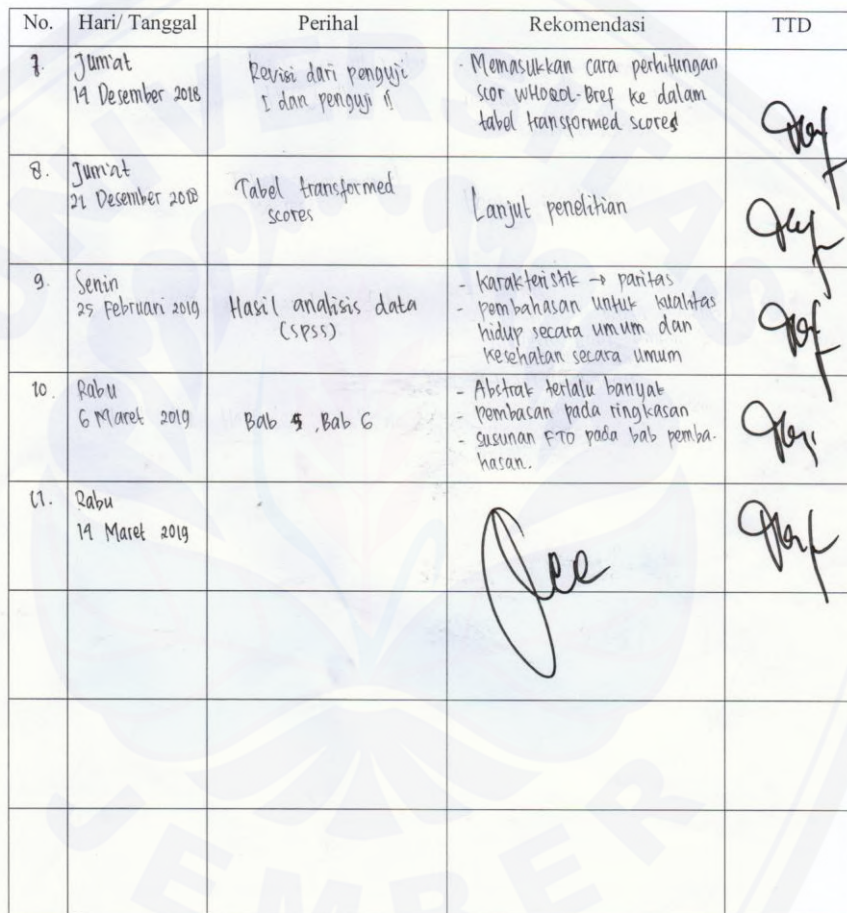 No. Hari/ Tanggal Perihal Rekomendasi TTD
7. Jum'at
14 Desember 2018
Revisi dari penguji
I dan penguji II
- Memasukkan cara perhitungan
scor WHOQOL-Bref ke dalam
tabel transformed scores
8. Jum'at
21 Desember 2018
Tabel transformed
scores
Lanjut penelitian
9. Senin
25 Februari 2019
Hasil analisis data
(SPSS)
- karakteristik → paritas
- pembahasan untuk kualitas
hidup secara umum dan
kesehatan secara umum
10. Rabu
6 Maret 2019
Bab 5, Bab 6
- Abstrak terlalu banyak
pembasan pada ringkasan
- susunan FTO pada bab pemba-
hasan.
11. Rabu
14 Maret 2019
Acc
UNIVERSITAS
JEMBER